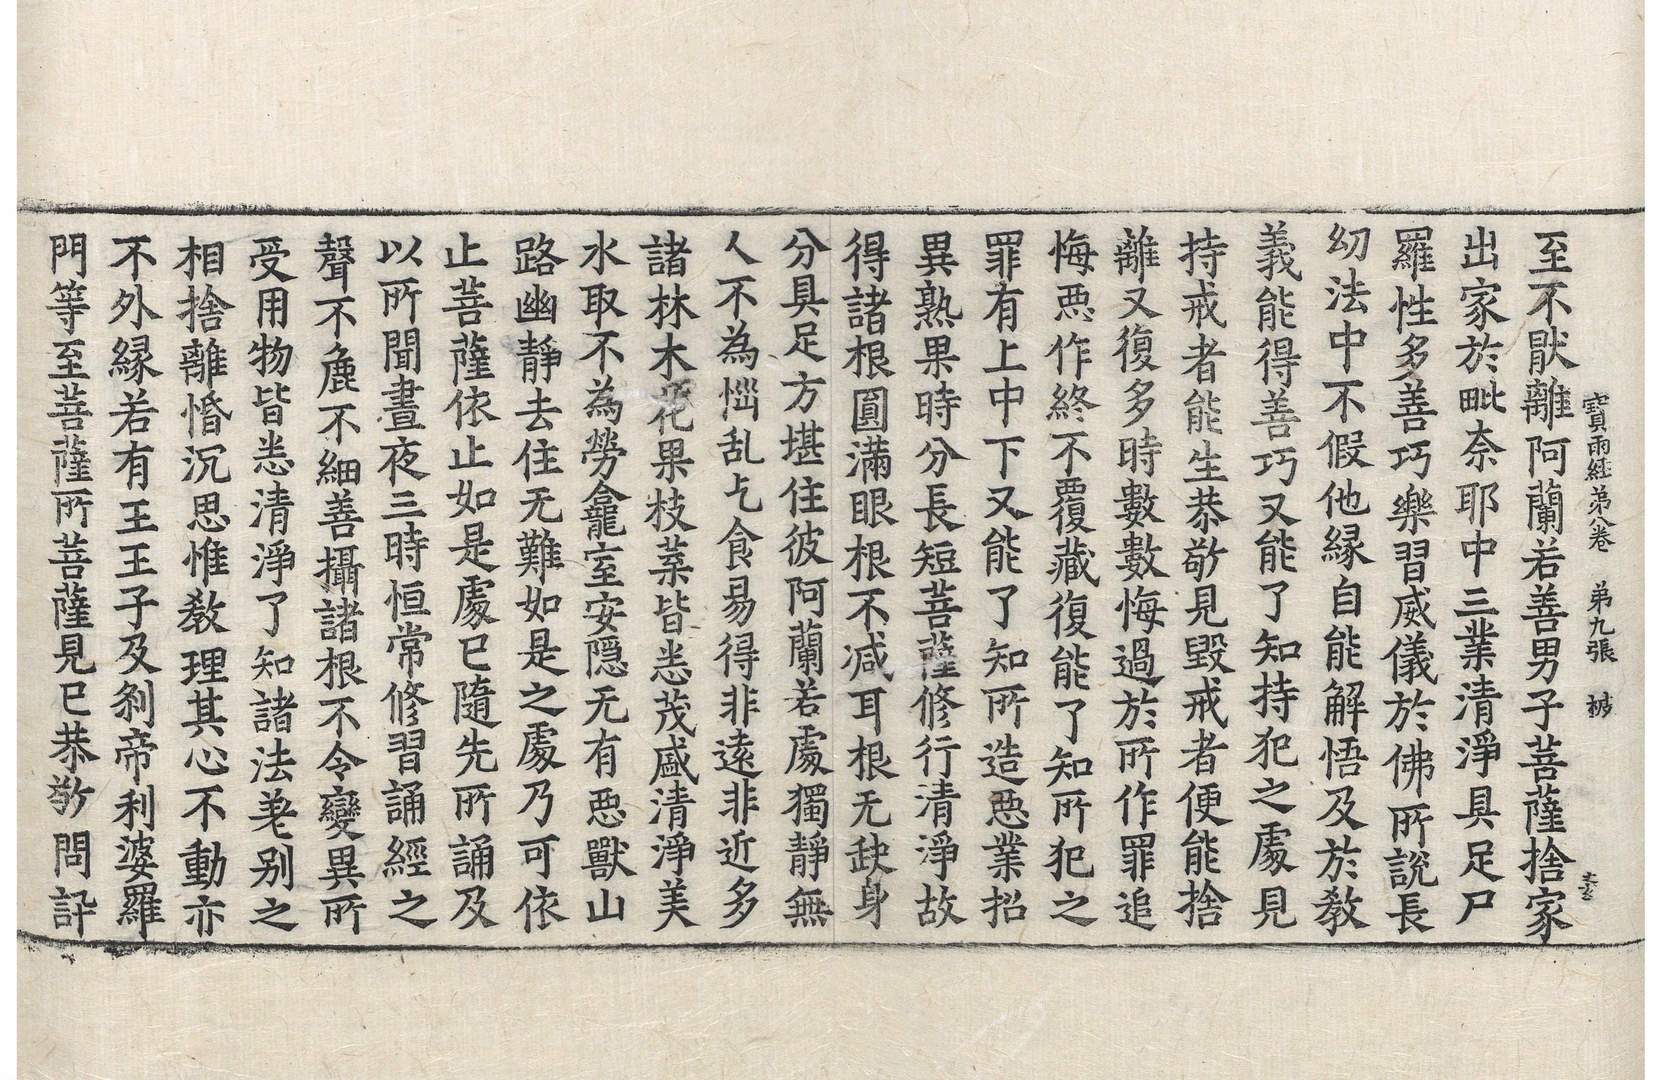 寶雨經第八卷 第九張
至不猒離阿蘭若善男子菩薩捨家
出家於毗奈耶中三業清淨具足尸
羅性多善巧樂習威儀於佛所說長
㓜法中不假他緣自能解悟及於教
義能得善巧又能了知持犯之處見
持戒者能生恭敬見毀戒者便能捨
離又復多時數數悔過於所作罪追
悔惡作終不覆藏復能了知所犯之
罪有上中下又能了知所造惡業招
異熟果時分長短菩薩修行清淨故
得諸根圓滿眼根不減耳根无缺身
分具足方堪住彼阿蘭若處獨靜無
人不為惱乱乞食易得非遠非近多
諸林木花果枝葉皆悉茂盛清淨美
水取不為勞龕室安隱无有惡獸山
路幽靜去住无難如是之處乃可依
止菩薩依止如是處已隨先所誦及
以所聞晝夜三時恒常修習誦經之
聲不麁不細善攝諸根不令變異所
受用物皆悉清淨了知諸法差别之
相捨離惛沉思惟教理其心不動亦
不外緣若有王王子及刹帝利婆羅
門等至菩薩所菩薩見已恭敬問訊